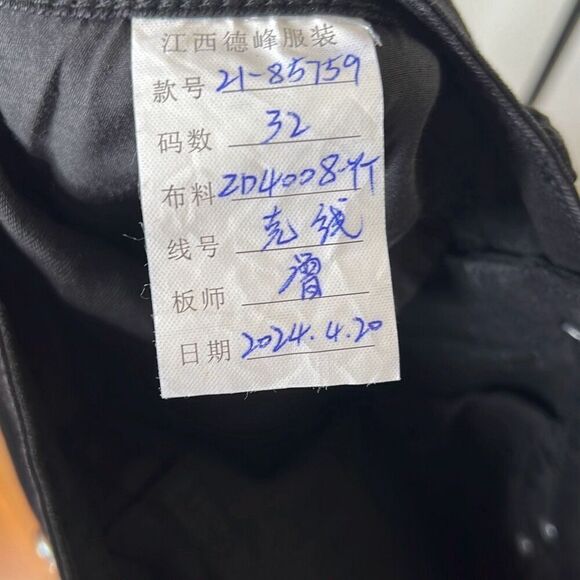 江西德峰服装
款号 21-85759
码数 32
布料 ZD4008-YT
线号 克线
板师 曾
日期 2024.4.20